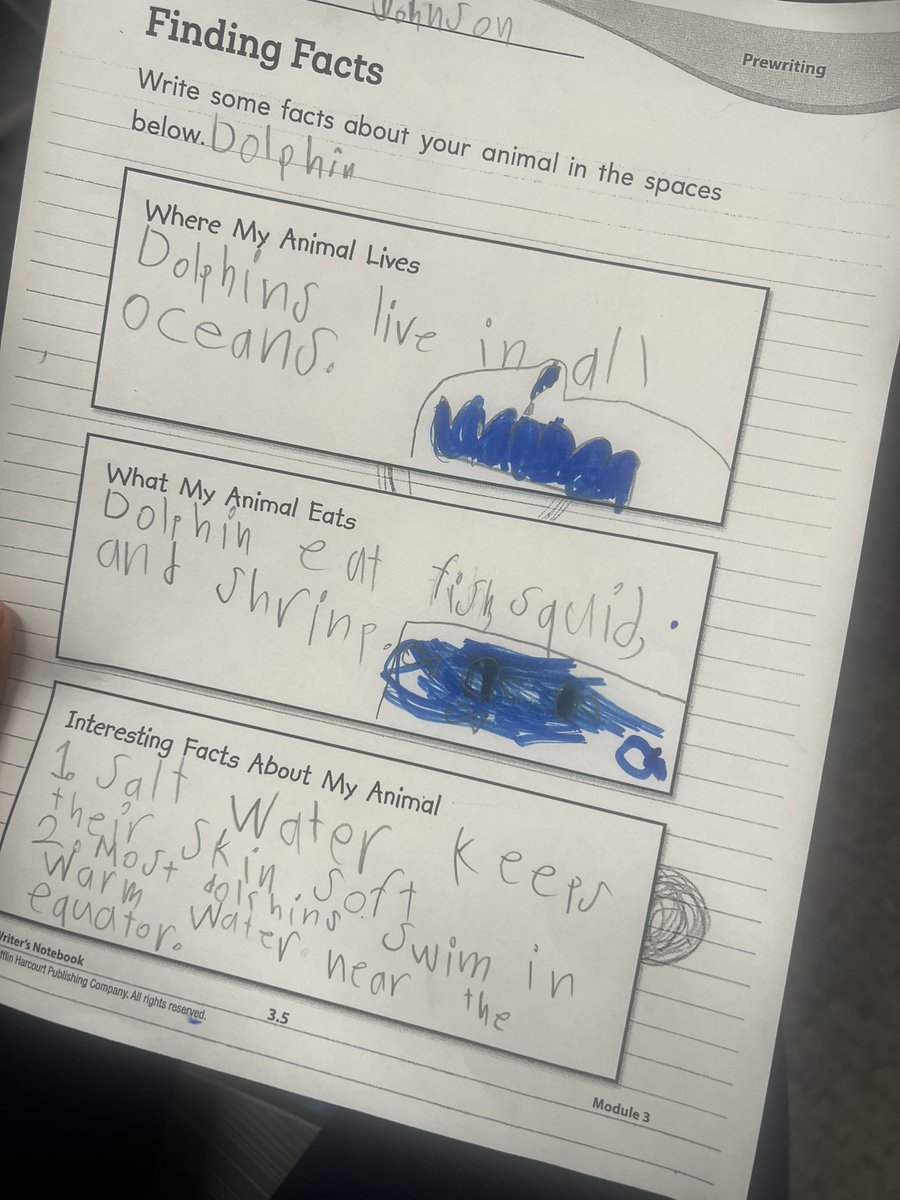 Johnson
Prewriting
Finding Facts
Write some facts about your animal in the spaces
below. Dolphin
Where My Animal Lives
Dolphins live in all
oceans.
What My Animal Eats
Dolphin eat fish, squid,
and shrinp.
Interesting Facts About My Animal
1. Salt Water keeps
their skin soft
2. Most dolphins swim in
warm water near the
equator.
Writer's Notebook
ifflin Harcourt Publishing Company. All rights reserved.
3.5
Module 3